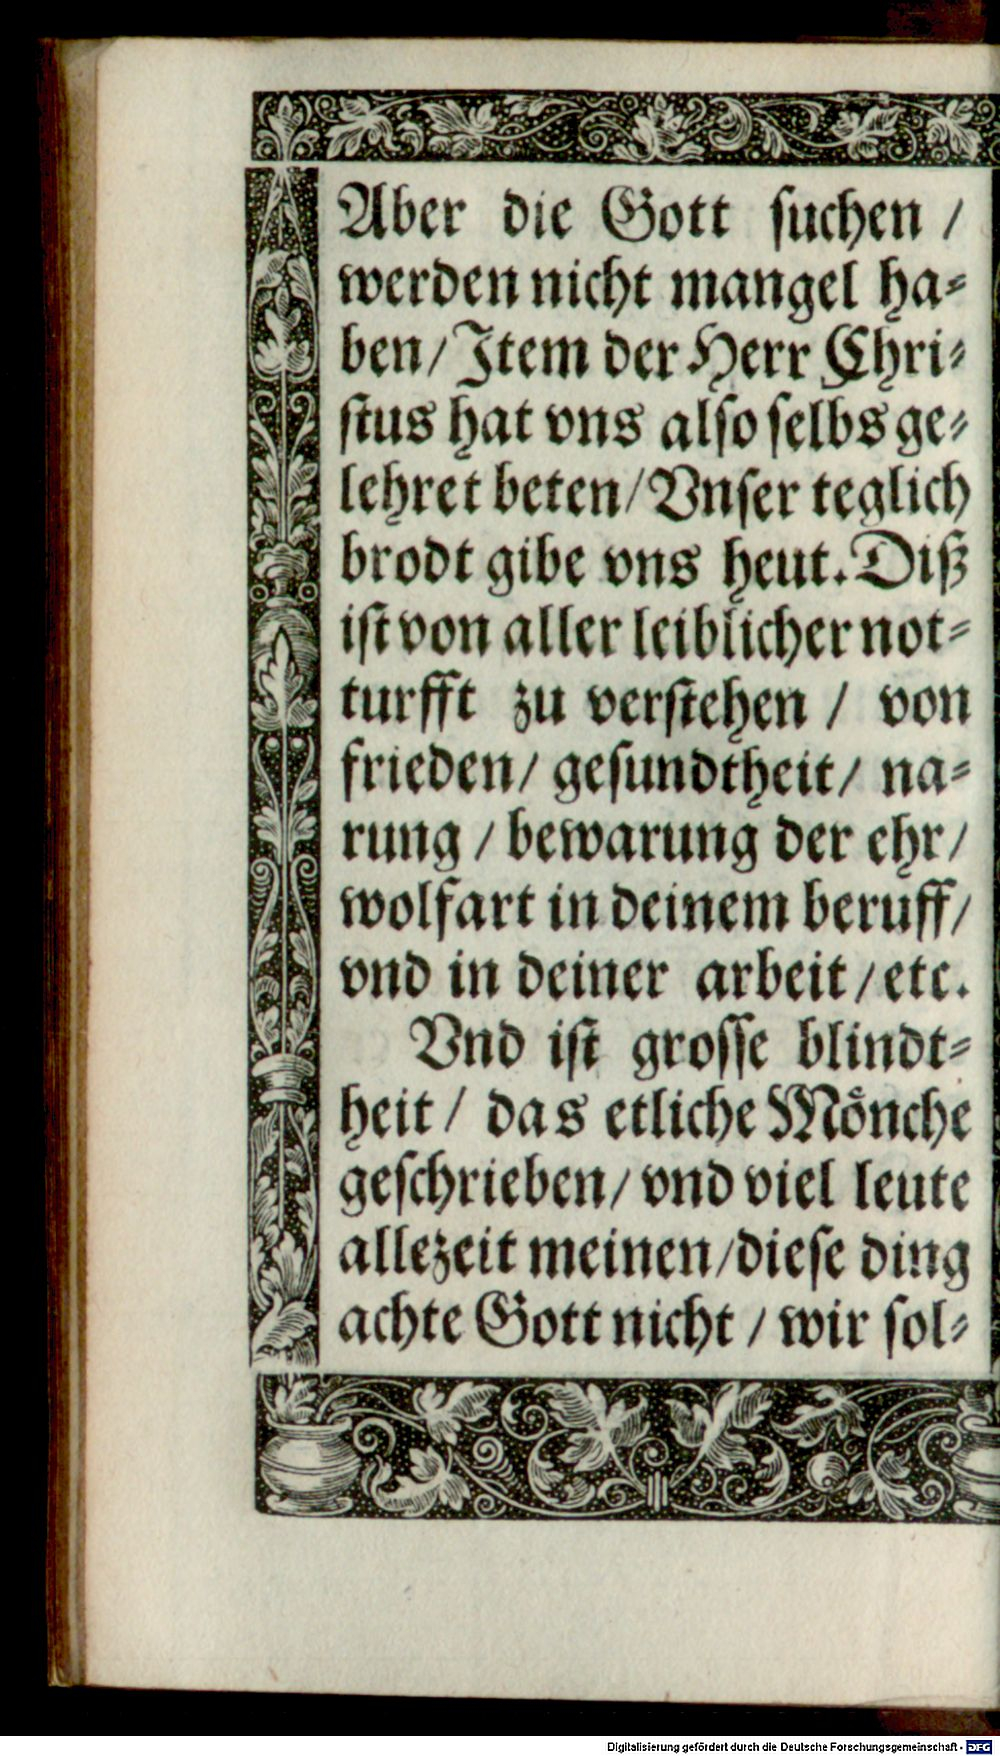 Aber die Gott ſuchen /
werden nicht mangel ha⸗
ben / Item der Herr Chri⸗
ſtus hat vns alſo ſelbs ge⸗
lehret beten / Vnſer teglich
brodt gibe vns heut. Diß
iſt von aller leiblicher not⸗
turfft zu verſtehen / von
frieden / geſundtheit / na⸗
rung / bewarung der ehr /
wolfart in deinem beruff /
vnd in deiner arbeit / etc.
Vnd iſt groſſe blindt⸗
heit / das etliche Mönche
geſchrieben / vnd viel leute
allezeit meinen / dieſe ding
achte Gott nicht / wir ſol⸗
Digitalisierung gefördert durch die Deutsche Forschungsgemeinschaft - DFG